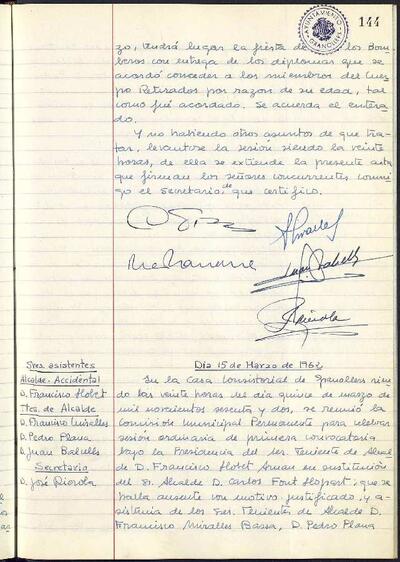 AYUNTAMIENTO
GRANOLLERS
144
zo, tendrá lugar la fiesta de los Bom-
beros con entrega de los diplomas que se
acordó conceder a los miembros del Cuer-
po Retirados por razon de su edad, tal
como fué acordado. Se acuerda el entera-
do.
Y no habiendo otros asuntos de que tra-
tar, levantose la sesión siendo la veinte
horas, de ella se extiende la presente acta
que firman los señores concurrentes conmi-
go el Secretario, de que certifico.
Sres. asistentes
Alcalde-Accidental
D. Francisco Llobet
Ttes. de Alcalde
D. Francisco Miralles
D. Pedro Plana
D. Juan Balcells
Secretario
D. José Rierola
Dia 15 de Marzo de 1962
En la Casa Consistorial de Granollers sien-
do las veinte horas del dia quince de marzo de
mil novecientos sesenta y dos, se reunió la
Comisión Municipal Permanente para celebrar
sesión ordinaria de primera convocatoria
bajo la Presidencia del 1er. Teniente de Alcalde
D. Francisco Llobet Arnan en sustitución
del Sr. Alcalde D. Carlos Font Llopart, que se
halla ausente con motivo justificado, y a-
sistencia de los Sres. Tenientes de Alcalde D.
Francisco Miralles Bassa, D. Pedro Plana